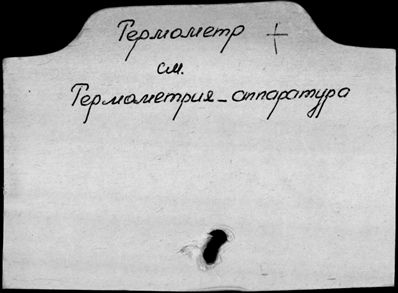 Термометр +
см.
Термометрия - аппаратура